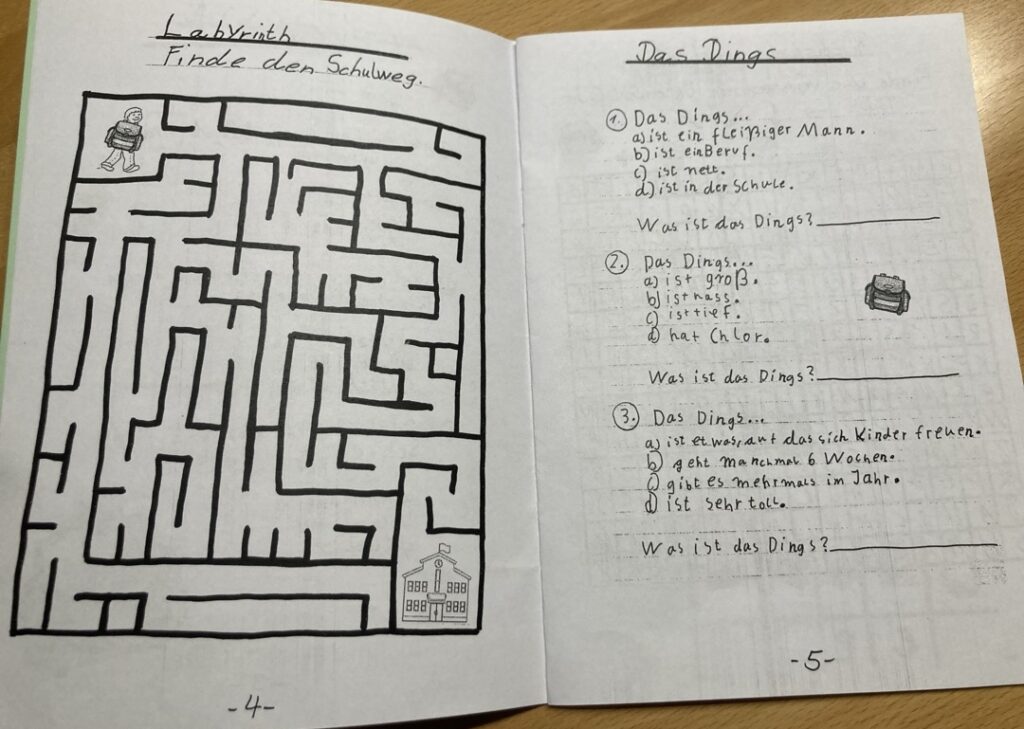 Labyrinth
Finde den Schulweg.
-4-
Das Dings
1. Das Dings...
a) ist ein fleißiger Mann.
b) ist ein Beruf.
c) ist nett.
d) ist in der Schule.
Was ist das Dings?
2. Das Dings...
a) ist groß.
b) ist nass.
c) ist tief.
d) hat Chlor.
Was ist das Dings?
3. Das Dings...
a) ist etwas, auf das sich Kinder freuen.
b) geht manchmal 6 Wochen.
c) gibt es mehrmals im Jahr.
d) ist sehr toll.
Was ist das Dings?
-5-